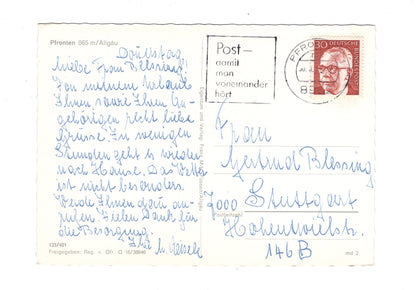 Pfronten 865 m/Allgäu
Donnerstag
Liebe Frau Blessing!
Von meinem Urlaub
Ihnen sowie Ihren An-
gehörigen recht liebe
Grüsse. In wenigen
Stunden geht es wieder
nach Hause. Das Wetter
ist nicht besonders.
Werde Ihnen dann an-
rufen. Vielen Dank für
die Besorgung.
Ihre
Post –
damit
man
voneinander
hört
PFRO
30 DEUTSCHE
Frau
Gertrud Blessing
7000 Stuttgart
Hohentwielstr.
146 B
Postleitzahl
Freigegeben: Reg. v. Ofr. G
md 2